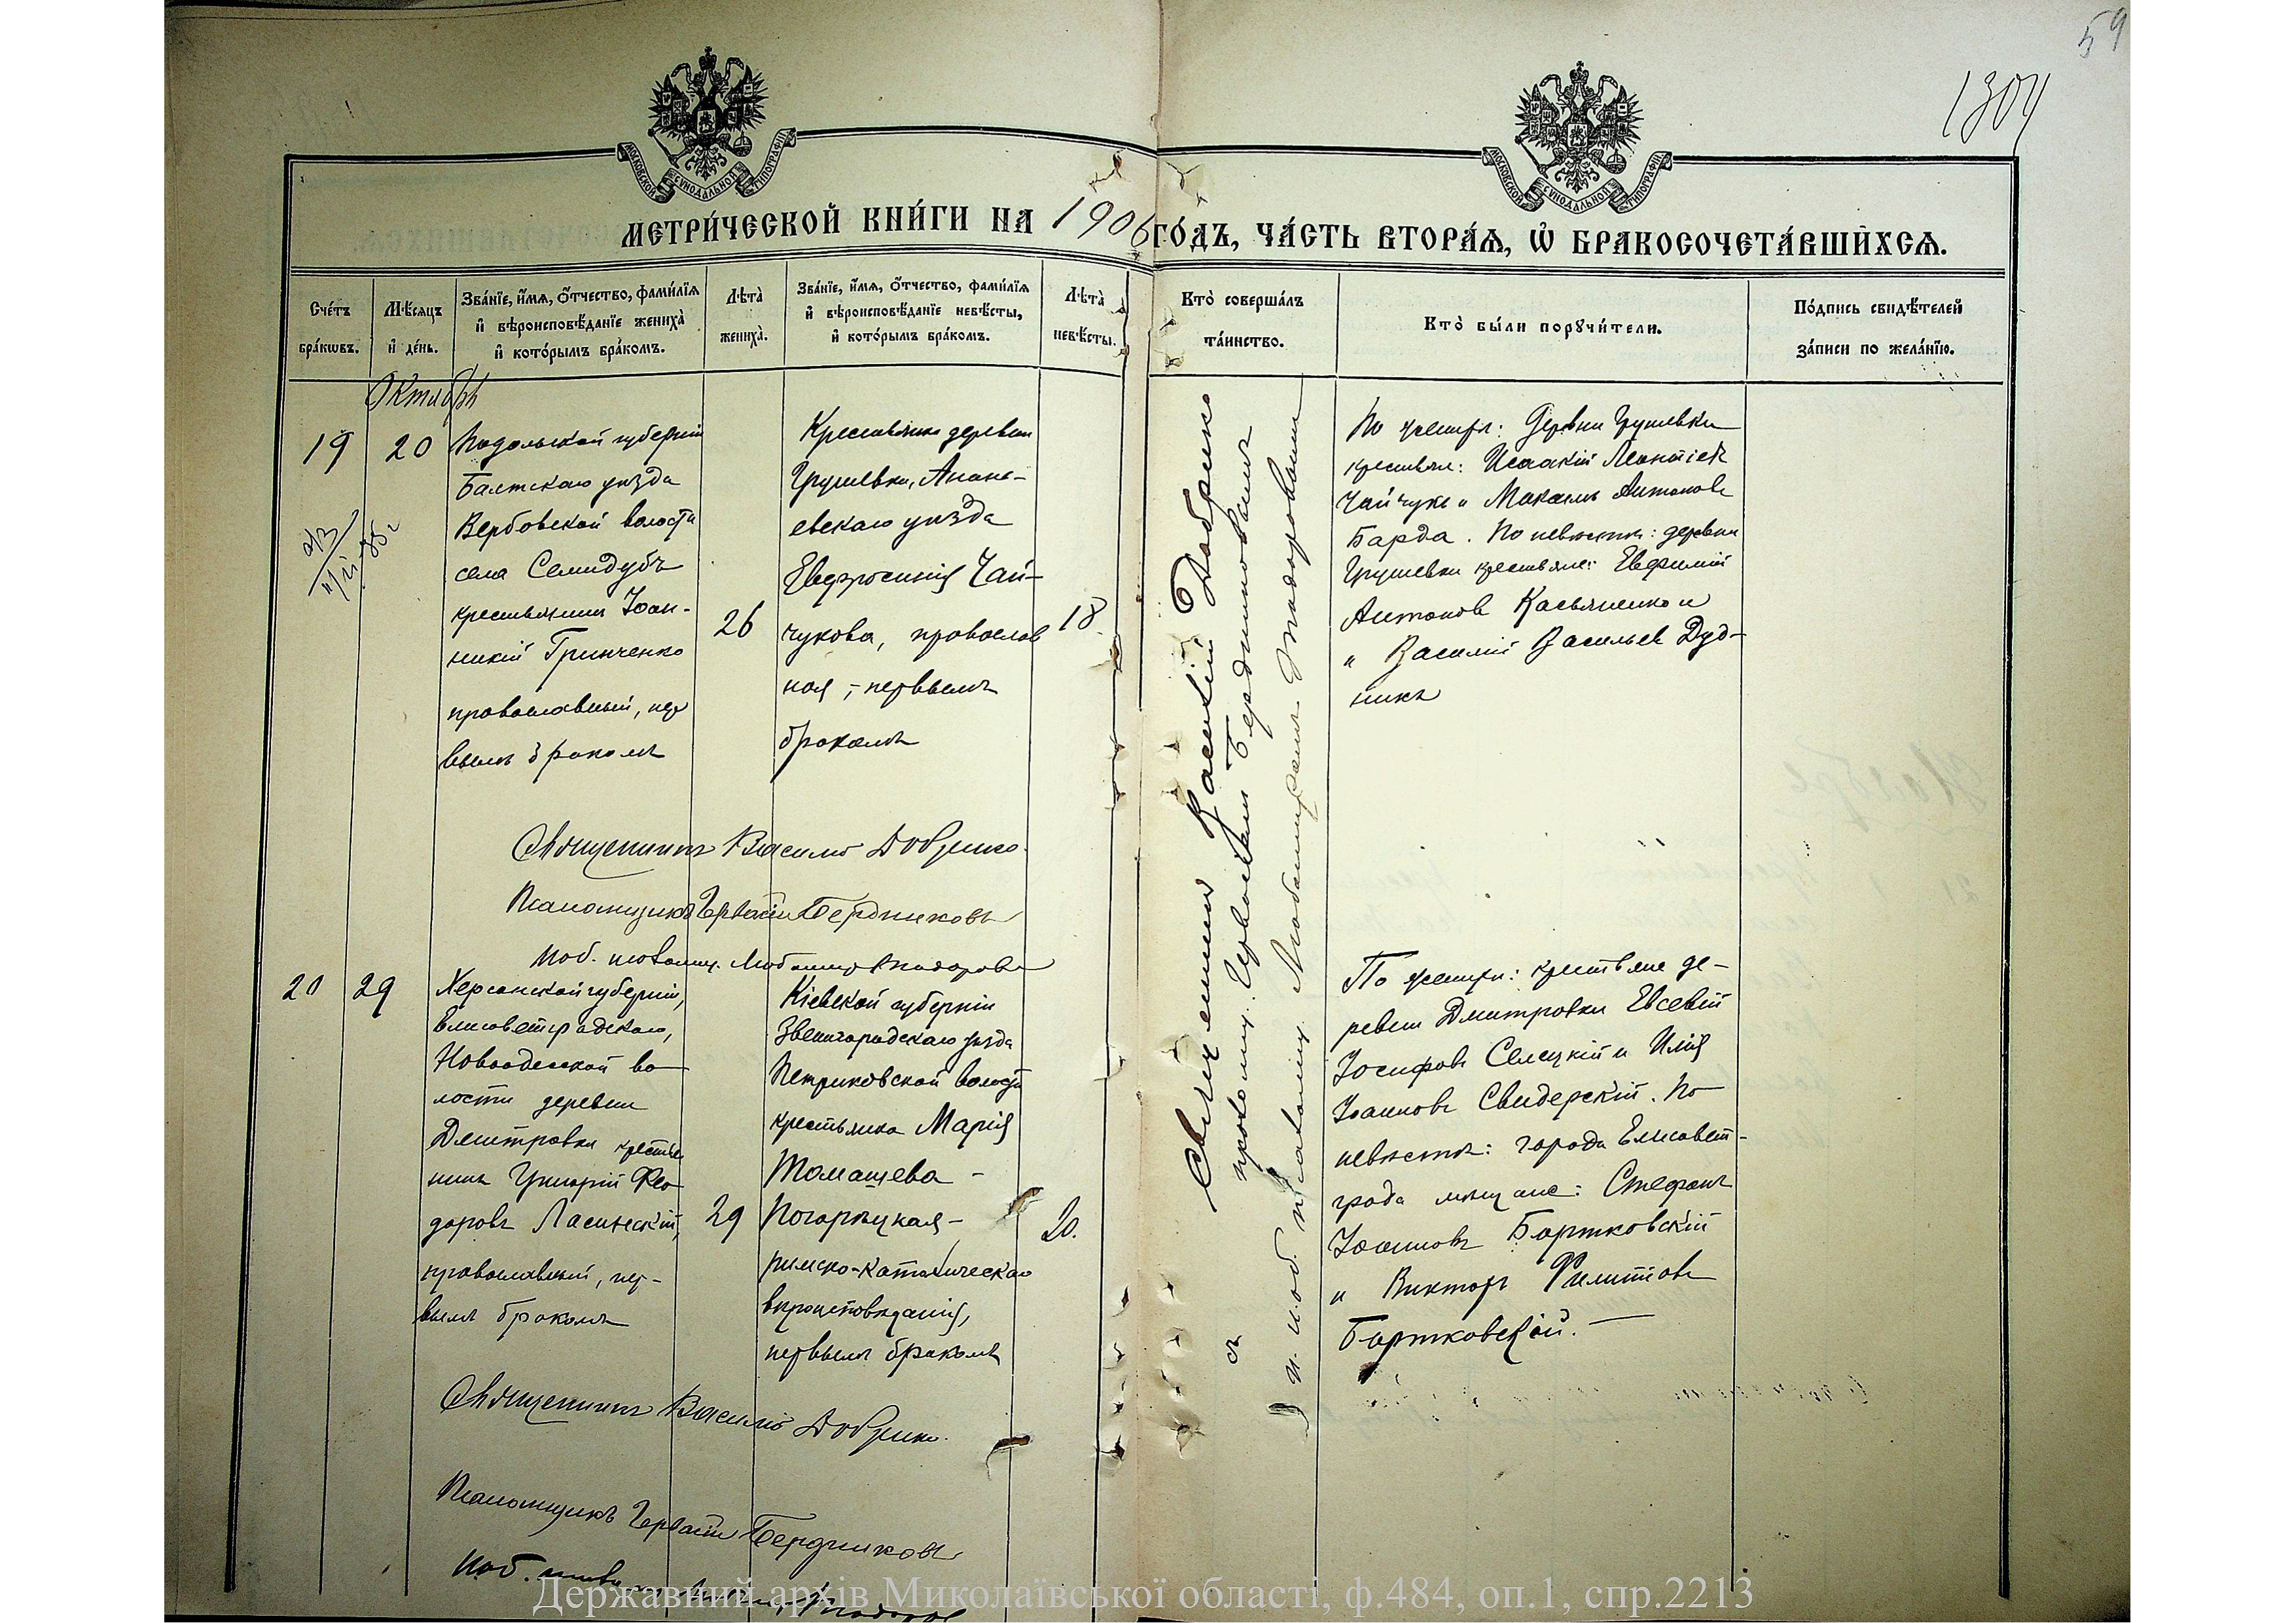 59
1304
МОСКОВСКОЙ СѴНОДАЛЬНОЙ ТИПОГРАФІИ
МОСКОВСКОЙ СѴНОДАЛЬНОЙ ТИПОГРАФІИ
МЕТРИ́ЧЕСКОЙ КНИ́ГИ НА 1906 ГО́ДЪ, ЧА́СТЬ ВТОРА́Ѧ, Ѡ҆ БРАКОСОЧЕТА́ВШИХСѦ.
Сче́тъ
бра́кѡвъ.
Мѣ́сѧцъ
и҆ де́нь.
Зва́нїе, и҆́мѧ, ѻ҆́тчество, фами́лїѧ
и҆ вѣроисповѣ́данїе жениха̀
и҆ кото́рымъ бра́комъ.
Лѣта̀
жениха̀.
Зва́нїе, и҆́мѧ, ѻ҆́тчество, фами́лїѧ
и҆ вѣроисповѣ́данїе невѣ́сты,
и҆ кото́рымъ бра́комъ.
Лѣта̀
невѣ́сты.
Кто̀ соверша́лъ
та́инство.
Кто̀ бы́ли порꙋчи́тели.
По́дпись свидѣ́телей
за́писи по жела́нїю.
Октябрь
19
20
Подольской губерніи
Балтскаго уѣзда
Вербовской волости
села Семидубъ
крестьянинъ Іоан-
никій Гринченко
православный, пер
вымъ бракомъ
26
Крестьянка деревни
Грушевки, Анань-
евскаго уѣзда
Евфросинія Чай-
чукова, православ
ная, первымъ
бракомъ
18
Священникъ Василій Добренко
По женихѣ: Деревни Грушевки
крестьяне: Исаакій Леонтіевъ
Чайчукъ и Максимъ Антоновъ
Барда. По невѣстѣ: деревни
Грушевки крестьяне: Евфимій
Антоновъ Касьяненко и
" Василій Васильевъ Дуд-
никъ
Священникъ Василій Добренко
Псаломщикъ Бердниковъ
20
29
Херсонской губерніи,
Елисаветградскаго,
Новоодесской во-
лости деревни
Дмитровки крестья
нинъ Григорій Фео
доровъ Ласинскій,
православный, пер-
вымъ бракомъ
29
Кіевской губерніи
Звенигородскаго уѣзда
Петриковской волости
крестьянка Марія
Томашева -
Погорецкая -
римско-католическаго
вѣроисповѣданія,
первымъ бракомъ
20.
По женихѣ: крестьяне де-
ревни Дмитровки Евсевій
Іосифовъ Селецкій и Илія
Іоанновъ Свидерскій. По
невѣстѣ: города Елисавет-
града мѣщане: Стефанъ
Іоанновъ Бортковскій
и Викторъ Филиповъ
Бортковскій.
Священникъ Василій Добренко.
Псаломщикъ Бердниковъ
Державний архів Миколаївської області, ф.484, оп.1, спр.2213